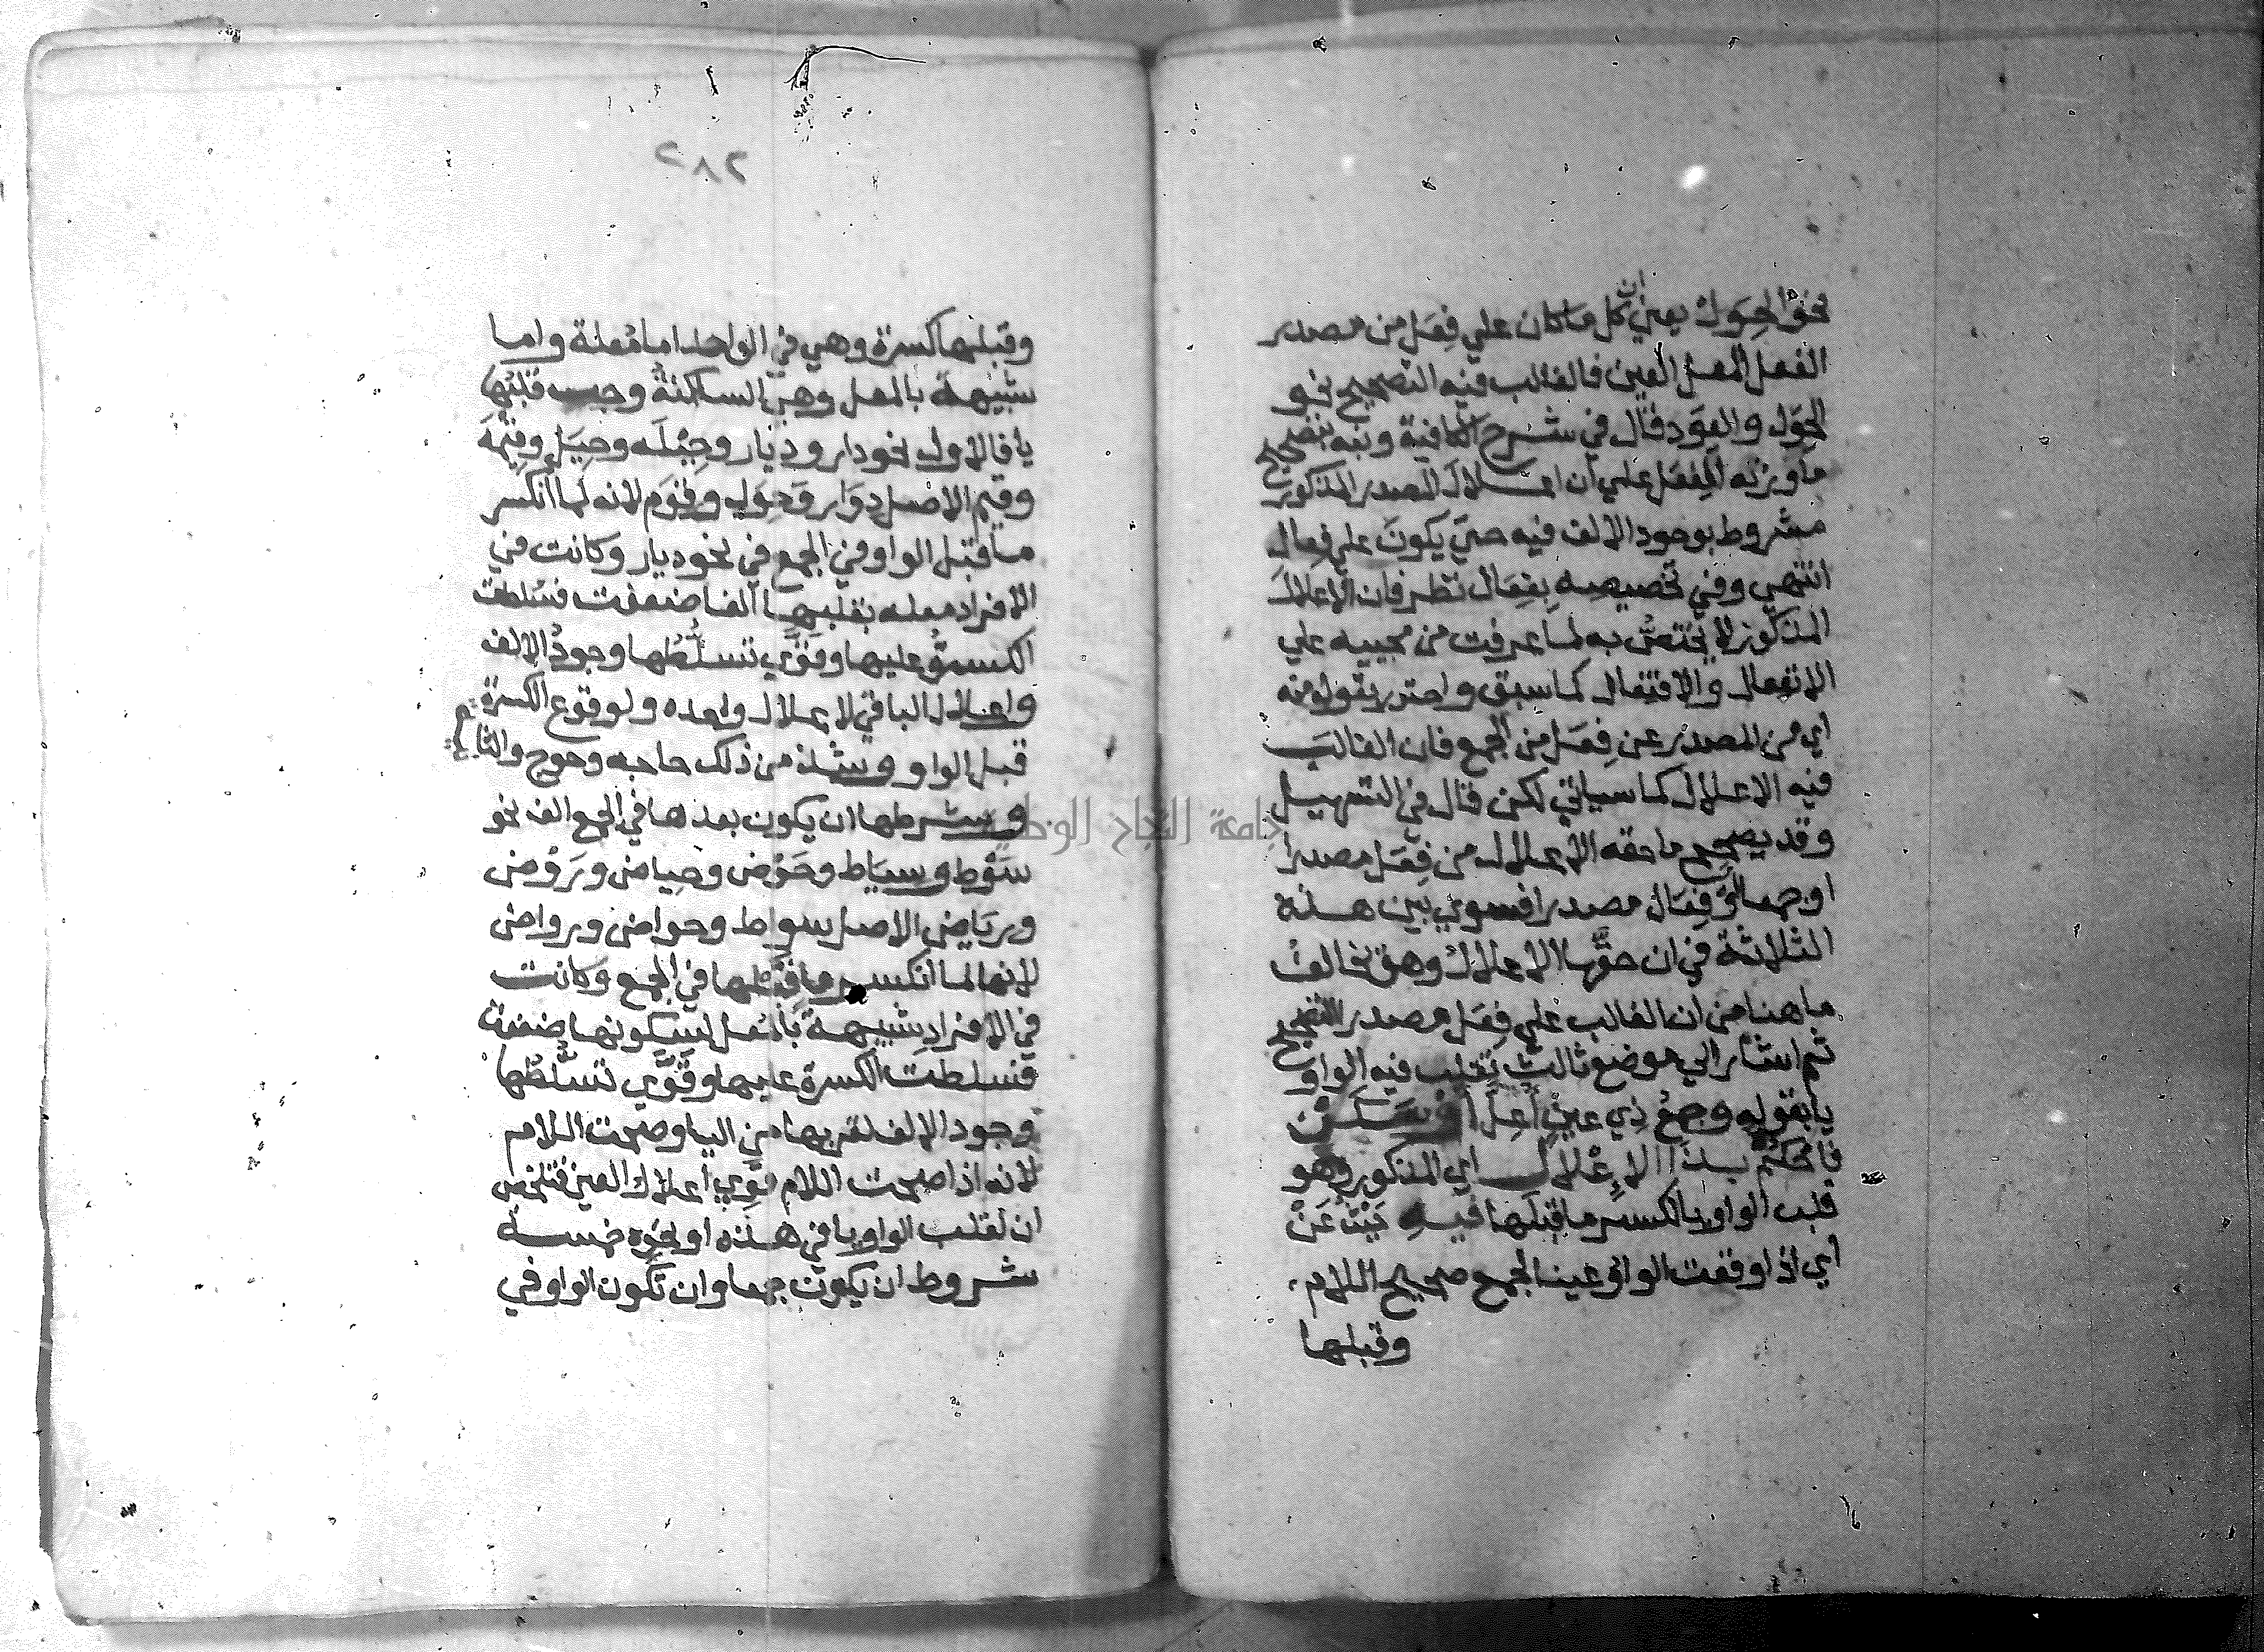 نحو الحِوَل يعني ان كل ما كان علي فِعَل من مصدر
الفعل المعل العين فالغالب فيه التصحيح نحو
الحِوَل والعِوَد قال في شرح الكافية ونبه بتصحيح
ما وزنه الفِعَل علي ان اعلال المصدر المذكور
مشروط بوجود الالف فيه حتي يكونَ علي فِعال
انتهي وفي تخصيصه بفِعَال نظر فان الاعلالَ
المذكور لا يختصُّ به لما عرفت من مجييه علي
الانفعال والافتعال كما سبق واحترز بقوله منه
اي من المصدر عن فِعَل من الجمع فان الغالبَ
فيه الاعلال كما سياتي لكن قال في التسهيل
وقد يصحح ما حقه الاعلال من فِعَل مصدرا
او جمعا وفِعَال مصدرا فسوي بين هذه
الثلاثة في ان حقَّها الاعلال وهو يخالف
ما هنا من ان الغالب علي فِعَل مصدر التصحيح
ثم اشار الي موضع ثالث تقلب فيه الواو
يا بقوله وجمعُ ذي عينٍ أُعِلَّ أَوْ سَكَنْ
فاحكُمْ بذَا الإِعْلال اي المذكور وهو
قلب الواو يا لكسر ما قبلها فيهِ حَيْثُ عَنْ
اي اذا وقعت الواو عينا لجمع صحيح اللام
وقبلها
٢٨٢
وقبلها كسرة وهي في الواحد اما مُعلة واما
شبيهة بالمعل وهي الساكنة وجب قلبُها
يا فالاول نحو دار وديار وحِيْلَه وحِيَل وقِيْمَة
وقيم الاصل دِوَار وَحِوَل وقِوَم لانه لما انكسر
ما قبل الواو في الجمع في نحو ديار وكانت في
الافراد معله بقلبها الفا ضعفت فسُلطت
الكسرةُ عليها وقوَّي تسلُّطَها وجودُ الالف
واعلال الباقي لاعلال واحده ولوقوع الكسرة
قبل الواو وشذ من ذلك حاجه وحوج والثاني
وشرطها ان يكون بعدها في الجمع الف نحو
سَوْط وسِيَاط وحَوْض وحِيَاض ورَوْض
ورِيَاض الاصل سواط وحواض ورواض
لانها لما انكسر ما قبلها في الجمع وكانت
في الافراد شبيهة بالمعل لسكونها ضعفت
فسلطت الكسرة عليها وقَوَّي تسلُّطَها
وجود الالف لقربها من اليا وصحت اللام
لانه اذا صحت اللام قَوِي اعلال العين فتلخص
ان لقلب الواو يا في هذه او نحوه خمسة
شروط ان يكون جمعا وان تكون الواو في
جامعة النجاح الوطنية